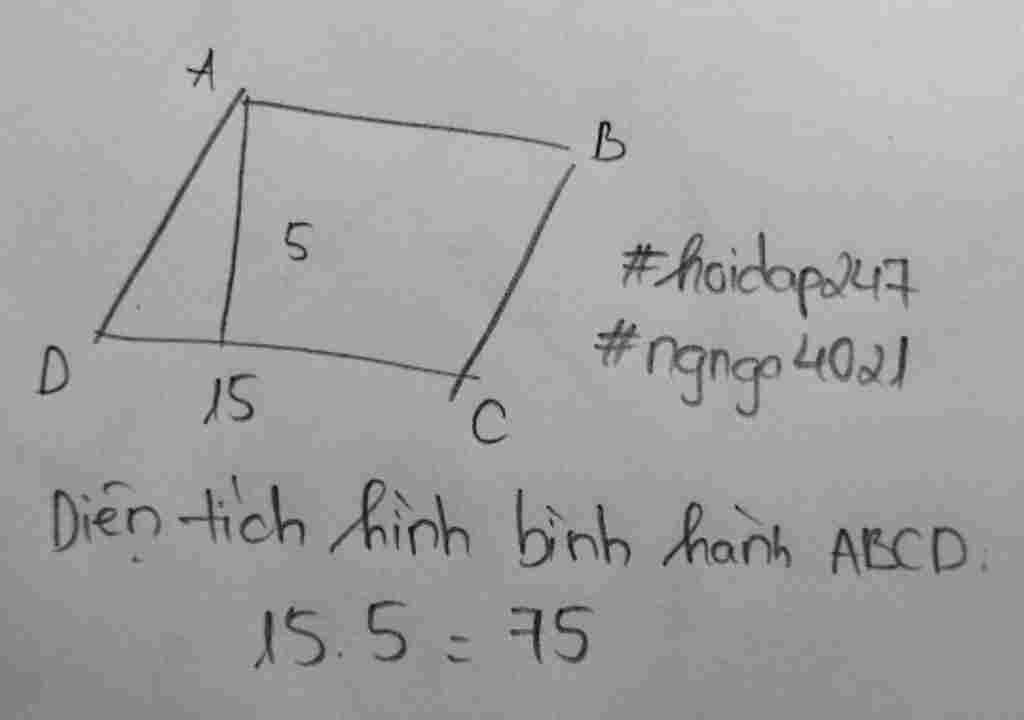 A
B
5
#hoidap247
#ngngo4021
D
15
C
Diện tích hình bình hành ABCD:
15.5 = 75